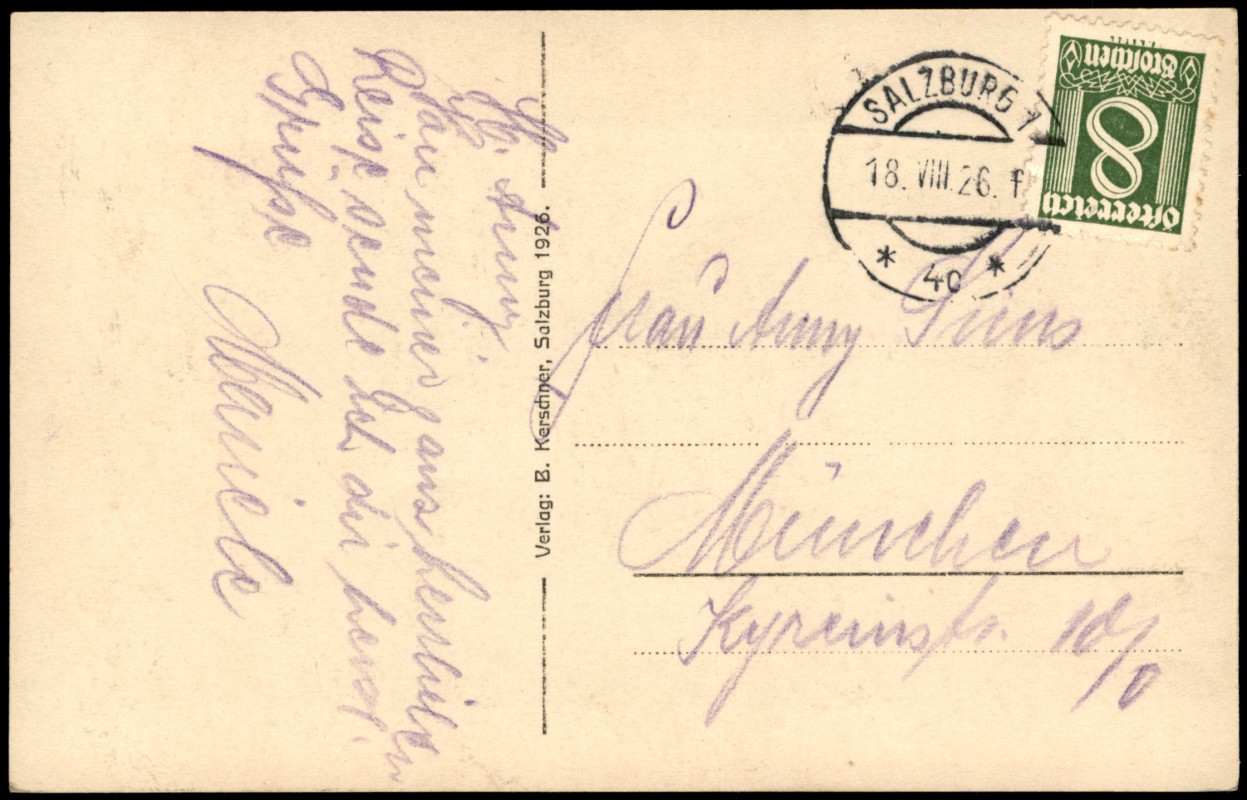 Lb. Anny!
Von meiner ganz herrlichen
Reise sende ich dir herzl.
Grüsse
Verlag: B. Kerschner, Salzburg 1926.
SALZBURG 1
18. VIII. 26. f
* 4c *
8
Groschen
Österreich
Frau Anny
München
Kyreinstr. 10/0